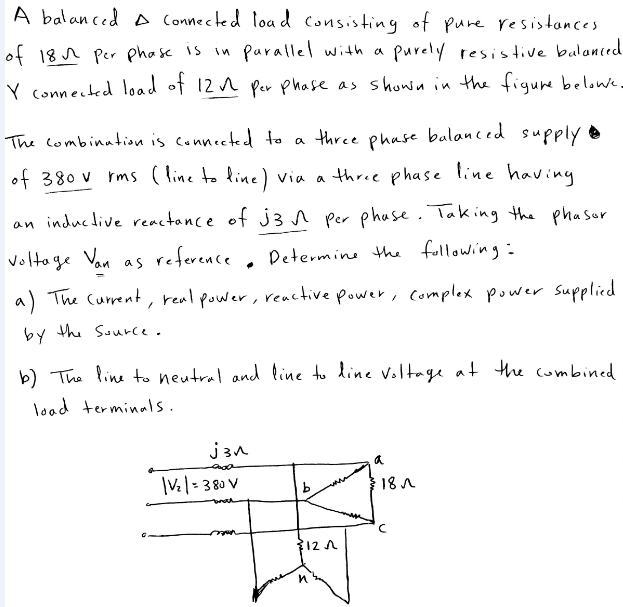 A balanced Δ connected load consisting of pure resistances
of 18Ω per phase is in parallel with a purely resistive balanced
Y connected load of 12Ω per phase as shown in the figure belowe.
The combination is connected to a three phase balanced supply
of 380 V rms (line to line) via a three phase line having
an inductive reactance of j3Ω per phase. Taking the phasor
voltage Van as reference. Determine the following:
a) The current, real power, reactive power, complex power supplied
by the source.
b) The line to neutral and line to line voltage at the combined
load terminals.
j3Ω
a
|V₂| = 380 V
b
18Ω
c
12Ω
n